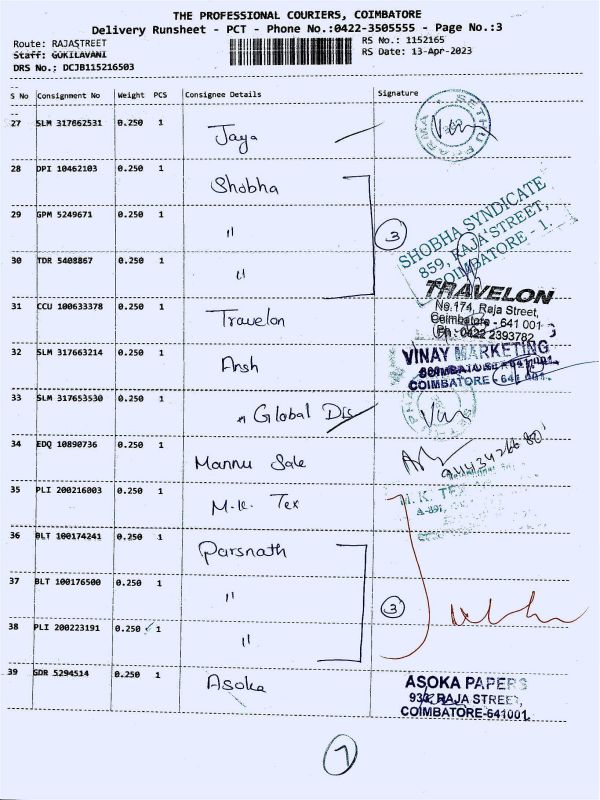 THE PROFESSIONAL COURIERS, COIMBATORE
Delivery Runsheet - PCT - Phone No.:0422-3505555 - Page No.:3
Route: RAJASTREET
RS No.: 1152165
Staff: GOKILAVANI
RS Date: 13-Apr-2023
DRS No.: DCJB115216503
S No Consignment No Weight PCS Consignee Details Signature
27 SLM 317662531 0.250 1 Jaya
SETHU PHARMA
28 DPI 10462103 0.250 1 Shobha
29 GPM 5249671 0.250 1 "
3
SHOBHA SYNDICATE
859, RAJA STREET,
COIMBATORE - 1.
30 TDR 5408867 0.250 1 "
TRAVELON
No.174, Raja Street,
Coimbatore - 641 001
Ph : 0422 2393782
31 CCU 100633378 0.250 1 Travelon
32 SLM 317663214 0.250 1 Ansh
VINAY MARKETING
COIMBATORE - 641 001.
33 SLM 317653530 0.250 1 " Global Dis
34 EDQ 10890736 0.250 1 Mannu Sale
35 PLI 200216003 0.250 1 M.K. Tex
M. K. TEX
36 BLT 100174241 0.250 1 Parsnath
37 BLT 100176500 0.250 1 "
3
38 PLI 200223191 0.250 1 "
39 GDR 5294514 0.250 1 Asoka
ASOKA PAPERS
RAJA STREET,
COIMBATORE-641001.
7